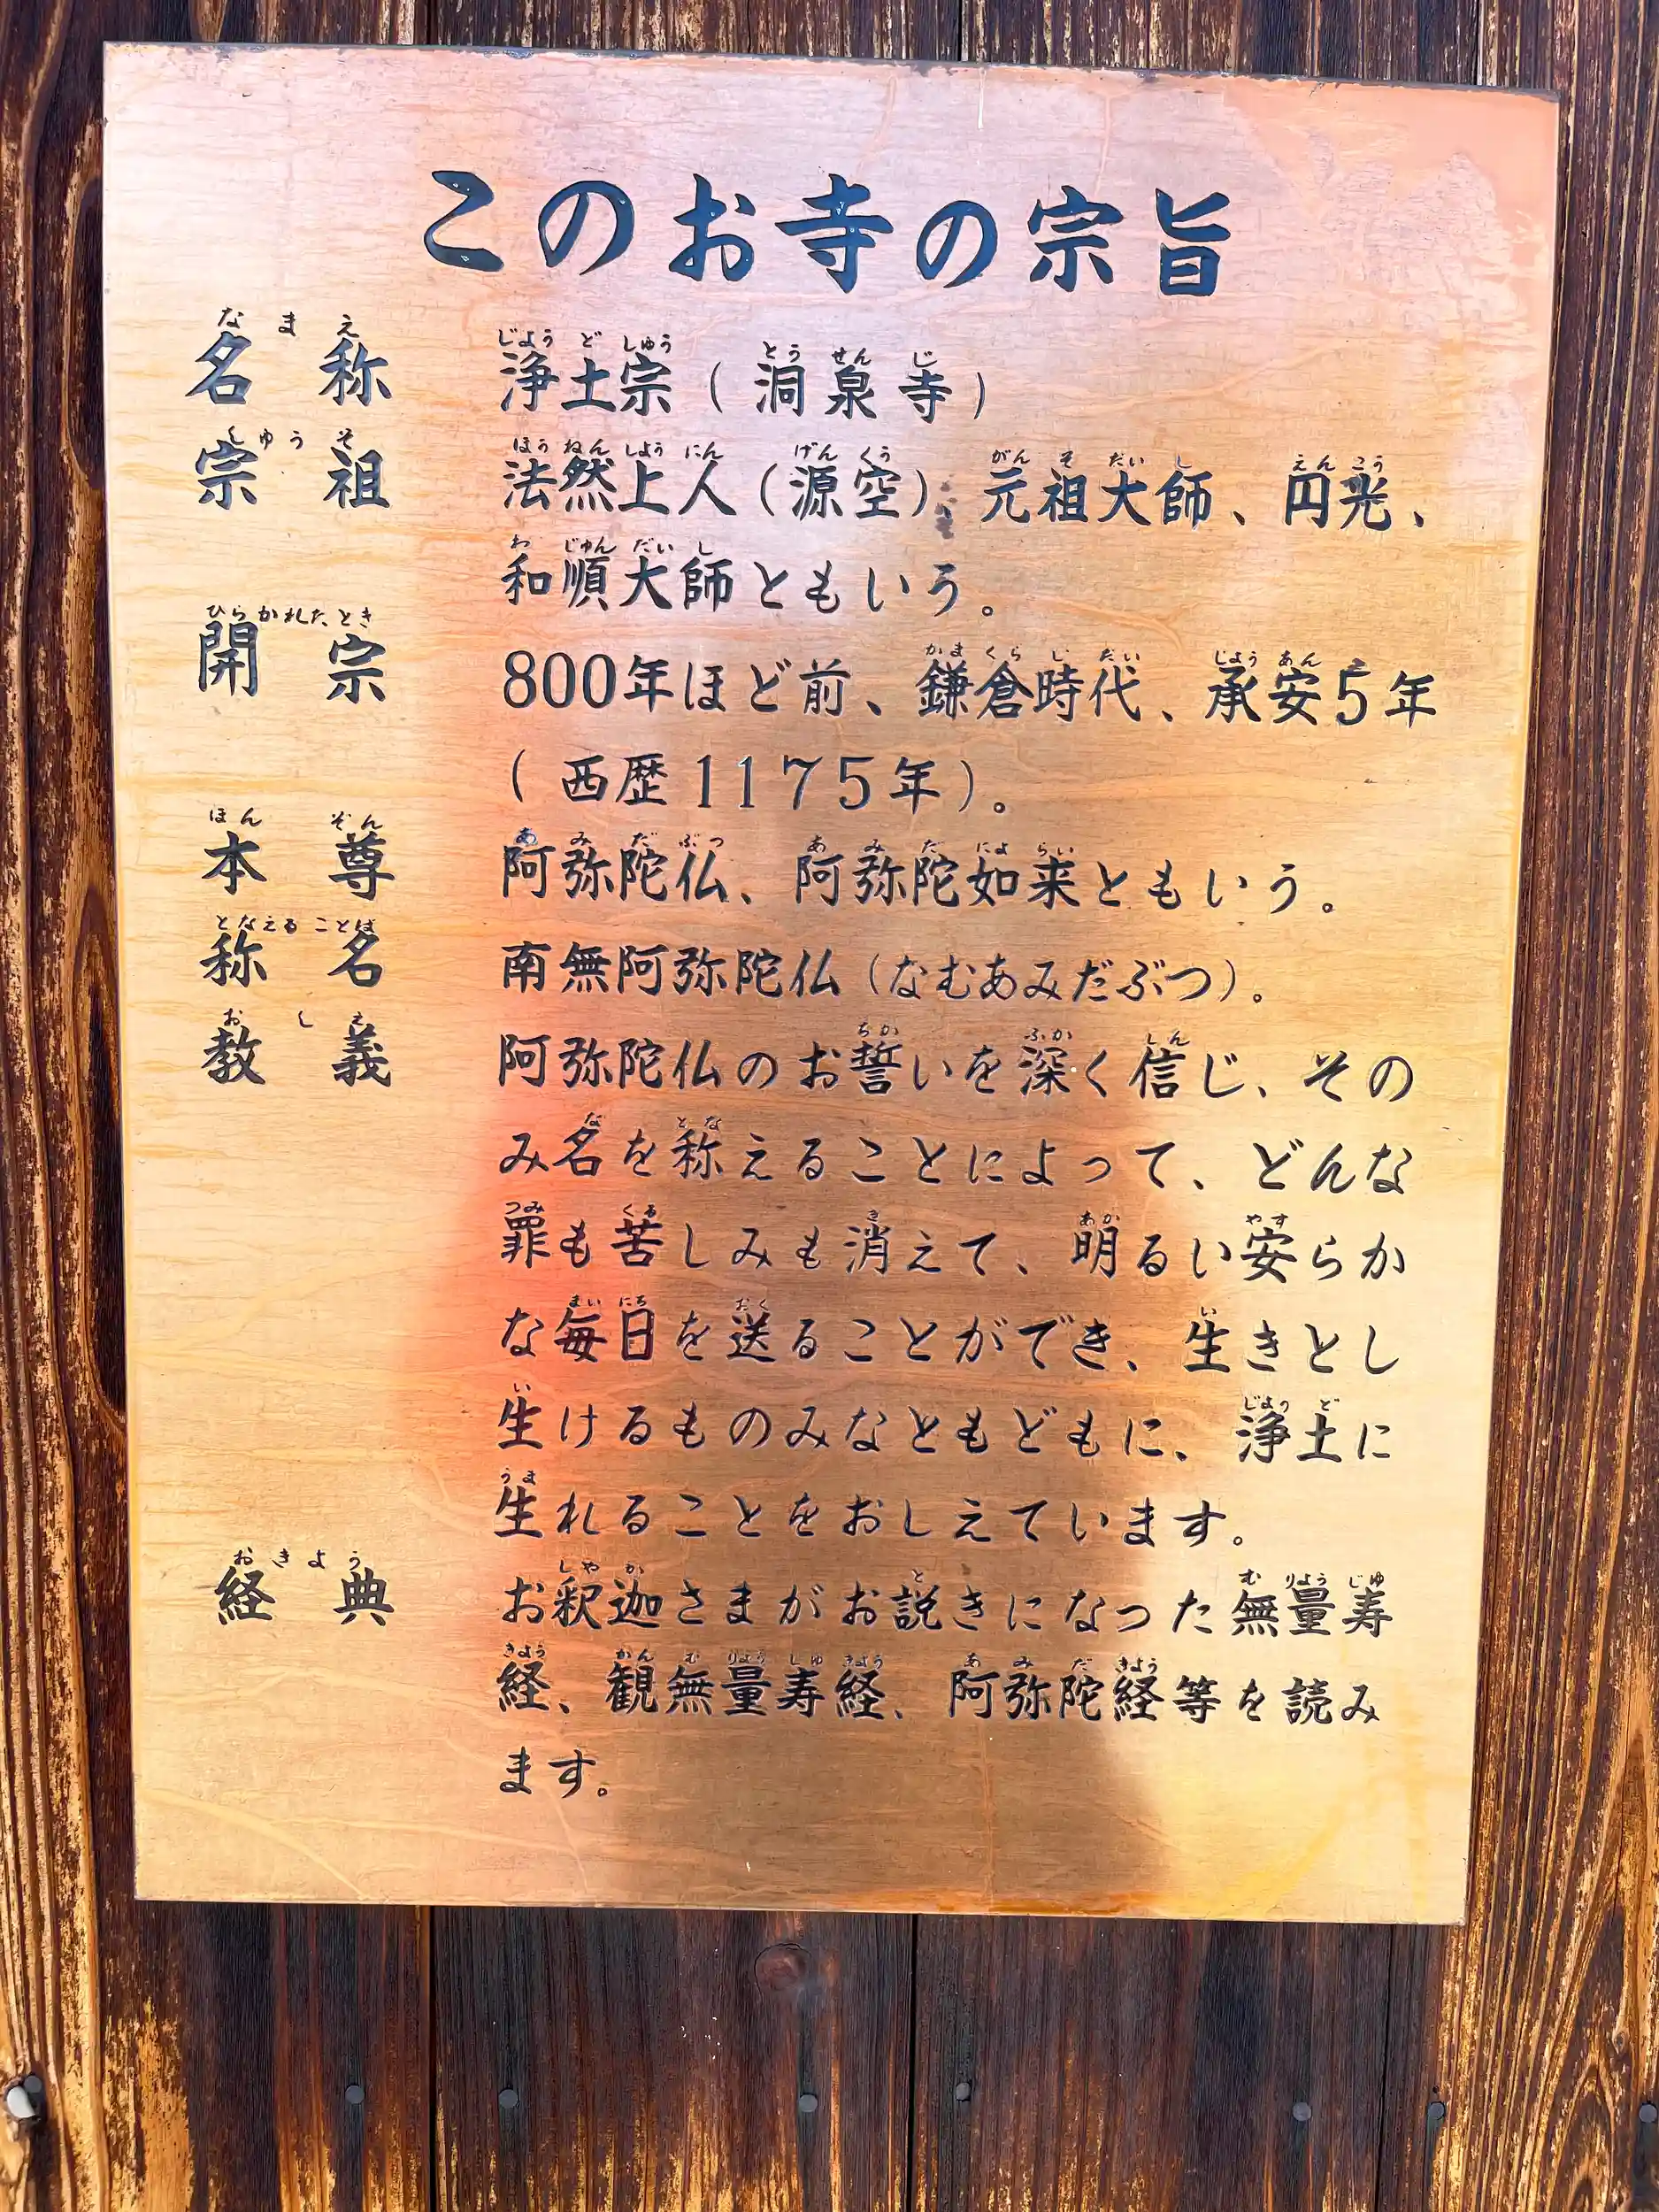 このお寺の宗旨
名称 浄土宗（洞泉寺）
宗祖 法然上人（源空）、元祖大師、円光、
和順大師ともいう。
開宗 800年ほど前、鎌倉時代、承安5年
（西歴1175年）。
本尊 阿弥陀仏、阿弥陀如来ともいう。
称名 南無阿弥陀仏（なむあみだぶつ）。
教義 阿弥陀仏のお誓いを深く信じ、その
み名を称えることによって、どんな
罪も苦しみも消えて、明るい安らか
な毎日を送ることができ、生きとし
生けるものみなともどもに、浄土に
生れることをおしえています。
経典 お釈迦さまがお説きになった無量寿
経、観無量寿経、阿弥陀経等を読み
ます。